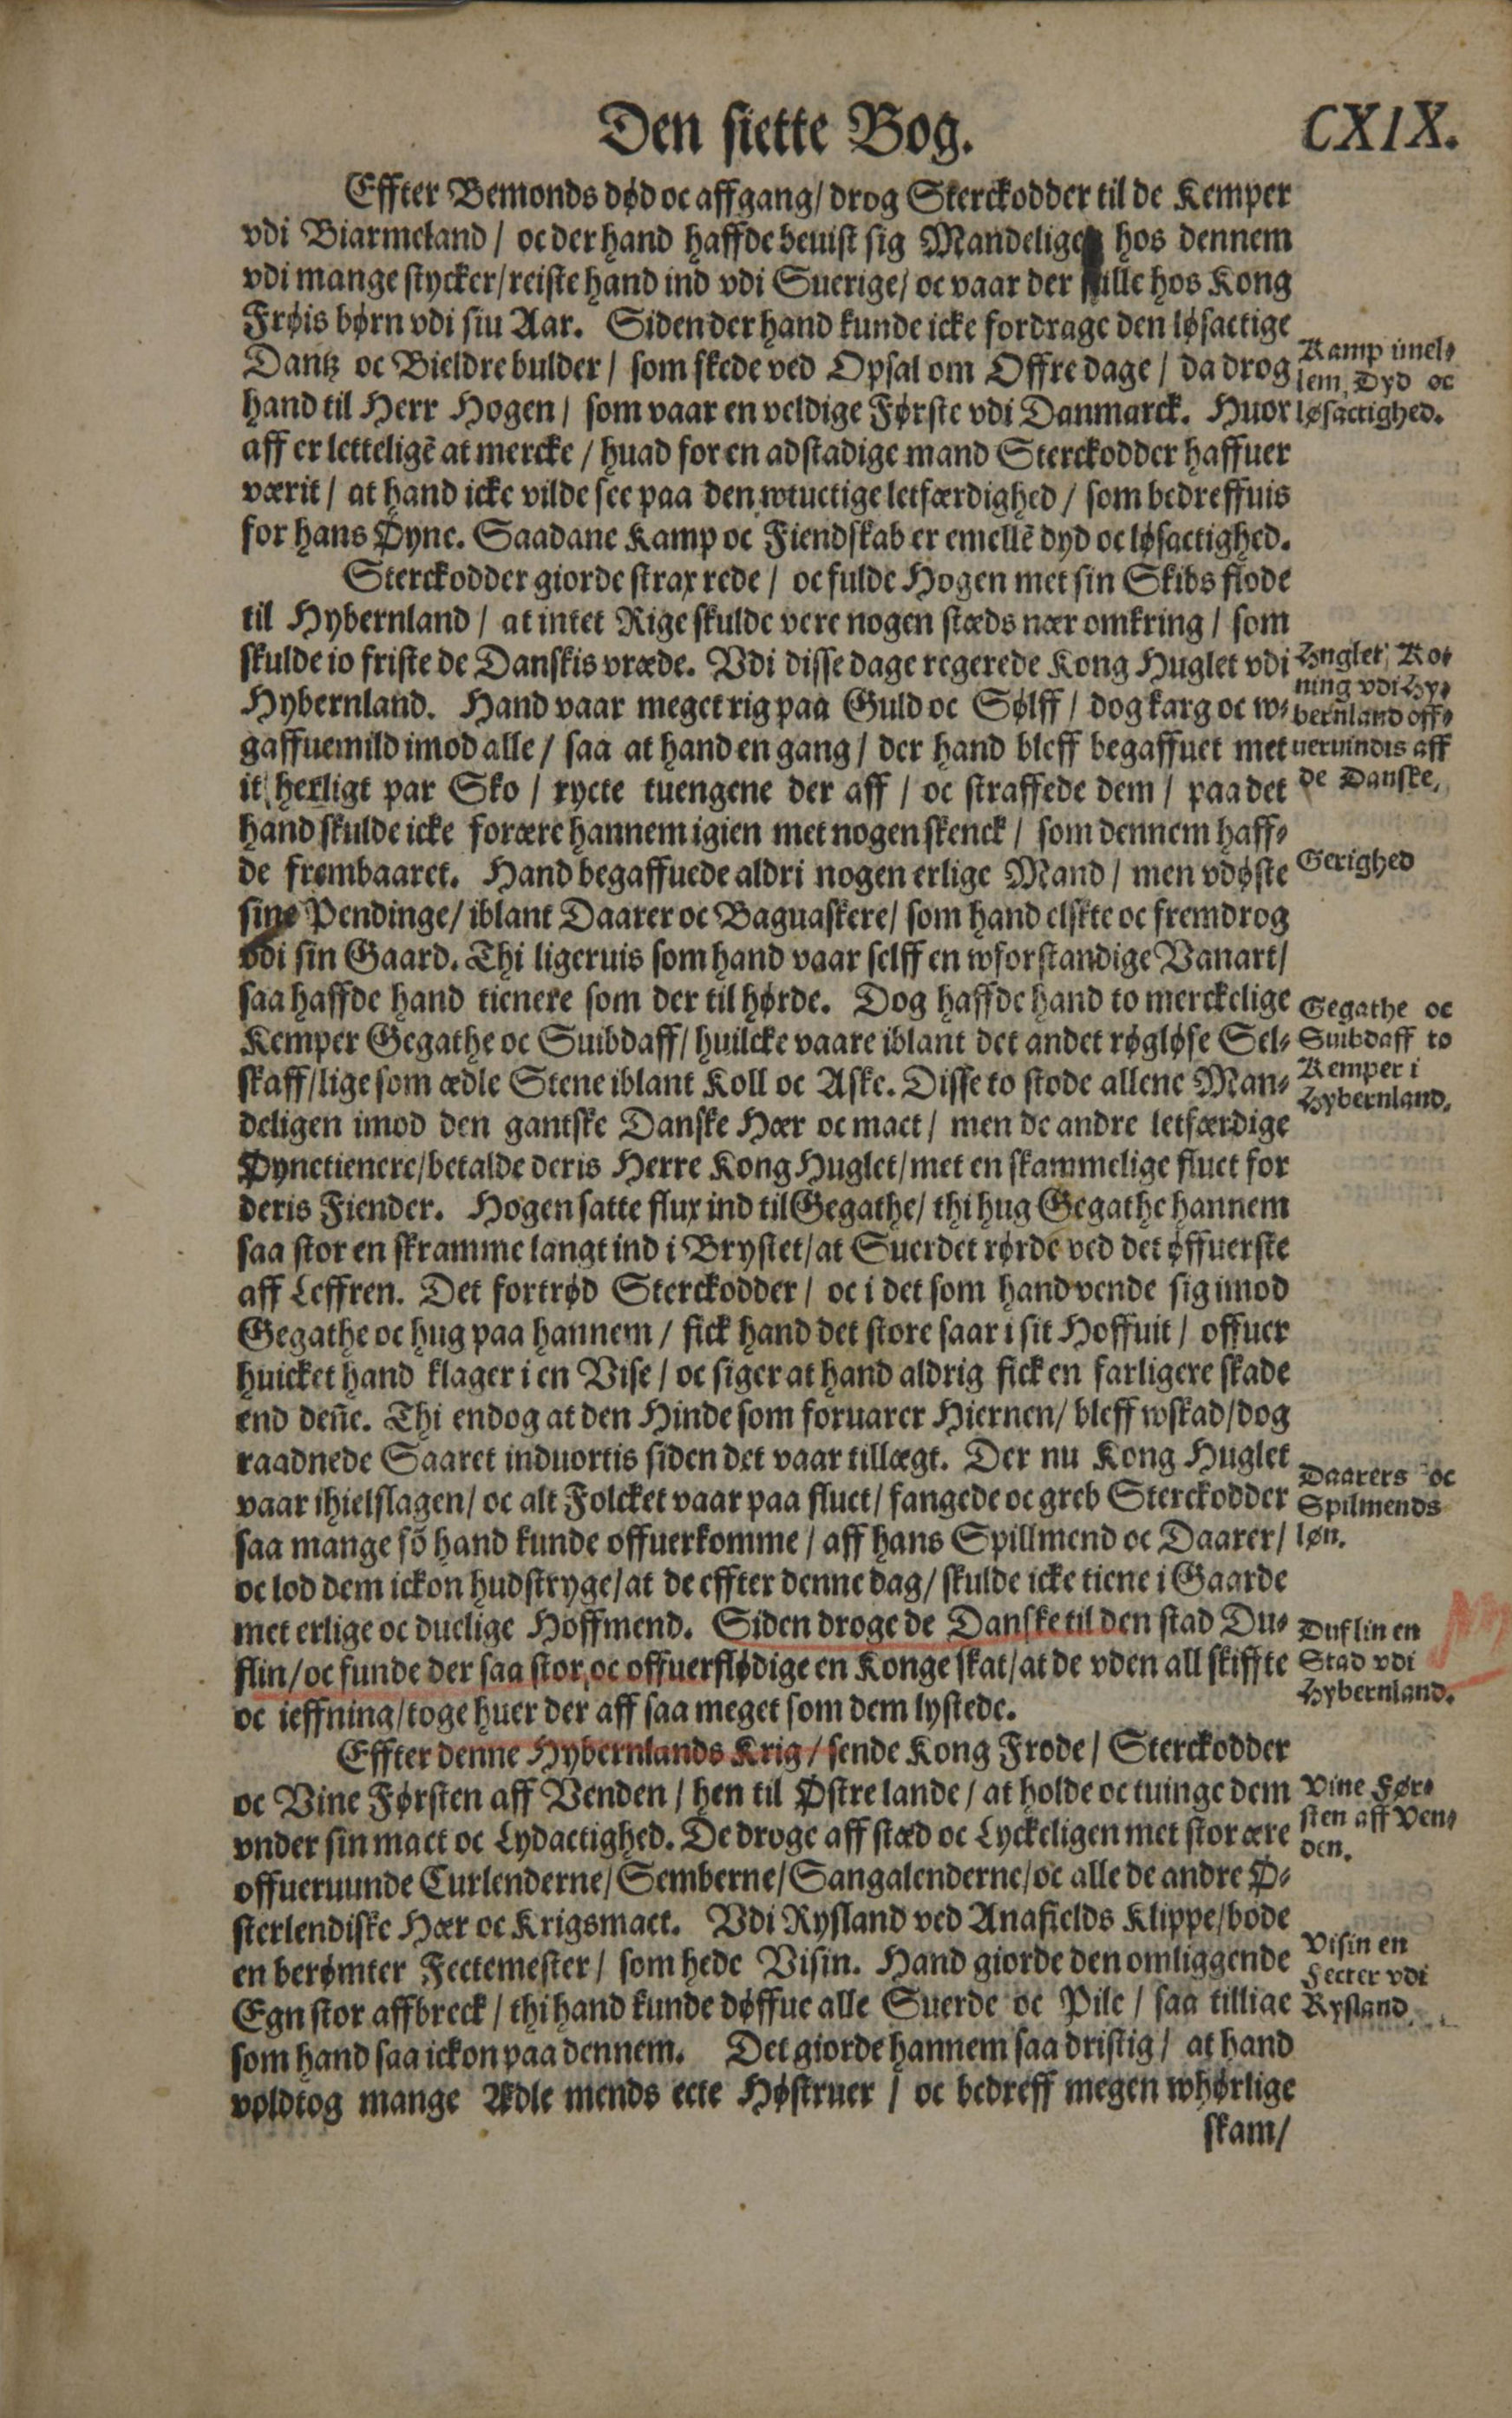 Den siette Bog.
CXIX.
Effter Bemonds død oc affgang / drog Sterckodder til de Kemper
vdi Biarmeland / oc der hand haffde beuist sig Mandeligen hos dennem
vdi mange stycker / reiste hand ind vdi Suerige / oc vaar der stille hos Kong
Frøis børn vdi siu Aar. Siden der hand kunde icke fordrage den løsactige
Dantz oc Bieldre bulder / som skede ved Opsal om Offre dage / da drog
hand til Herr Hogen / som vaar en veldige Første vdi Danmarck. Huor
aff er letteligẽ at mercke / huad for en adstadige mand Sterckodder haffuer
værit / at hand icke vilde see paa den wtuctige letfærdighed / som bedreffuis
for hans Øyne. Saadane Kamp oc Fiendskab er emellẽ dyd oc løsactighed.
Kamp imel⸗
lem Dyd oc
løsactighed.
Sterckodder giorde strax rede / oc fulde Hogen met sin Skibs flode
til Hybernland / at intet Rige skulde vere nogen stæds nær omkring / som
skulde io friste de Danskis vræde. Vdi disse dage regerede Kong Huglet vdi
Hybernland. Hand vaar meget rig paa Guld oc Sølff / dog karg oc w⸗
gaffuemild imod alle / saa at hand en gang / der hand bleff begaffuet met
it herligt par Sko / rycte tuengene der aff / oc straffede dem / paa det
hand skulde icke forære hannem igien met nogen skenck / som dennem haff⸗
de frembaaret. Hand begaffuede aldri nogen erlige Mand / men vdøste
sine Pendinge / iblant Daarer oc Baguaskere / som hand elskte oc fremdrog
vdi sin Gaard. Thi ligeruis som hand vaar selff en wforstandige Vanart /
saa haffde hand tienere som der til hørde. Dog haffde hand to merckelige
Kemper Gegathe oc Suibdaff / huilcke vaare iblant det andet røgløse Sel⸗
skaff / lige som ædle Stene iblant Koll oc Aske. Disse to stode allene Man⸗
deligen imod den gantske Danske Hær oc mact / men de andre letfærdige
Øynetienere / betalde deris Herre Kong Huglet / met en skammelige fluct for
deris Fiender. Hogen satte flux ind til Gegathe / thi hug Gegathe hannem
saa stor en skramme langt ind i Brystet / at Suerdet rørde ved det øffuerste
aff Leffren. Det fortrød Sterckodder / oc i det som hand vende sig imod
Gegathe oc hug paa hannem / fick hand det store saar i sit Hoffuit / offuer
huicket hand klager i en Vise / oc siger at hand aldrig fick en farligere skade
end den̄e. Thi endog at den Hinde som foruarer Hiernen / bleff wskad / dog
raadnede Saaret induortis siden det vaar tillægt. Der nu Kong Huglet
vaar ihielslagen / oc alt Folcket vaar paa fluct / fangede oc greb Sterckodder
saa mange sõ hand kunde offuerkomme / aff hans Spillmend oc Daarer /
oc lod dem ickon hudstryge / at de effter denne dag / skulde icke tiene i Gaarde
met erlige oc duelige Hoffmend. Siden droge de Danske til den stad Du⸗
flin / oc funde der saa stor, oc offuerflødige en Konge skat / at de vden all skiffte
oc ieffning / toge huer der aff saa meget som dem lystede.
Huglet, Ko⸗
ning vdi Hy⸗
bernland off⸗
ueruindis aff
de Danske.
Gerighed
Gegathe oc
Suibdaff to
Kemper i
Hybernland.
Daarers oc
Spilmends
løn.
Duflin en
Stad vdi
Hybernland.
Effter denne Hybernlands Krig / sende Kong Frode / Sterckodder
oc Vine Første​n aff Venden / hen til Østre lande / at holde oc tuinge dem
vnder sin mact oc Lydactighed. De droge aff stæd oc Lyckeligen met stor ære
offueruunde Curlenderne / Semberne / Sangalenderne / oc alle de andre Ø⸗
sterlendiske Hær oc Krigsmact. Vdi Rysland ved Anafields Klippe / bode
en berømter Fectemester / som hede Visin. Hand giorde den omliggende
Egn stor affbreck / thi hand kunde døffue alle Suerde oc Pile / saa tillige
som hand saa ickon paa dennem. Det giorde hannem saa dristig / at hand
voldtog mange Ædle mends ecte Høstruer / oc bedreff megen whørlige
skam /
Vine Før⸗
sten aff Ven⸗
den.
Visin en
Fecter vdi
Rysland.